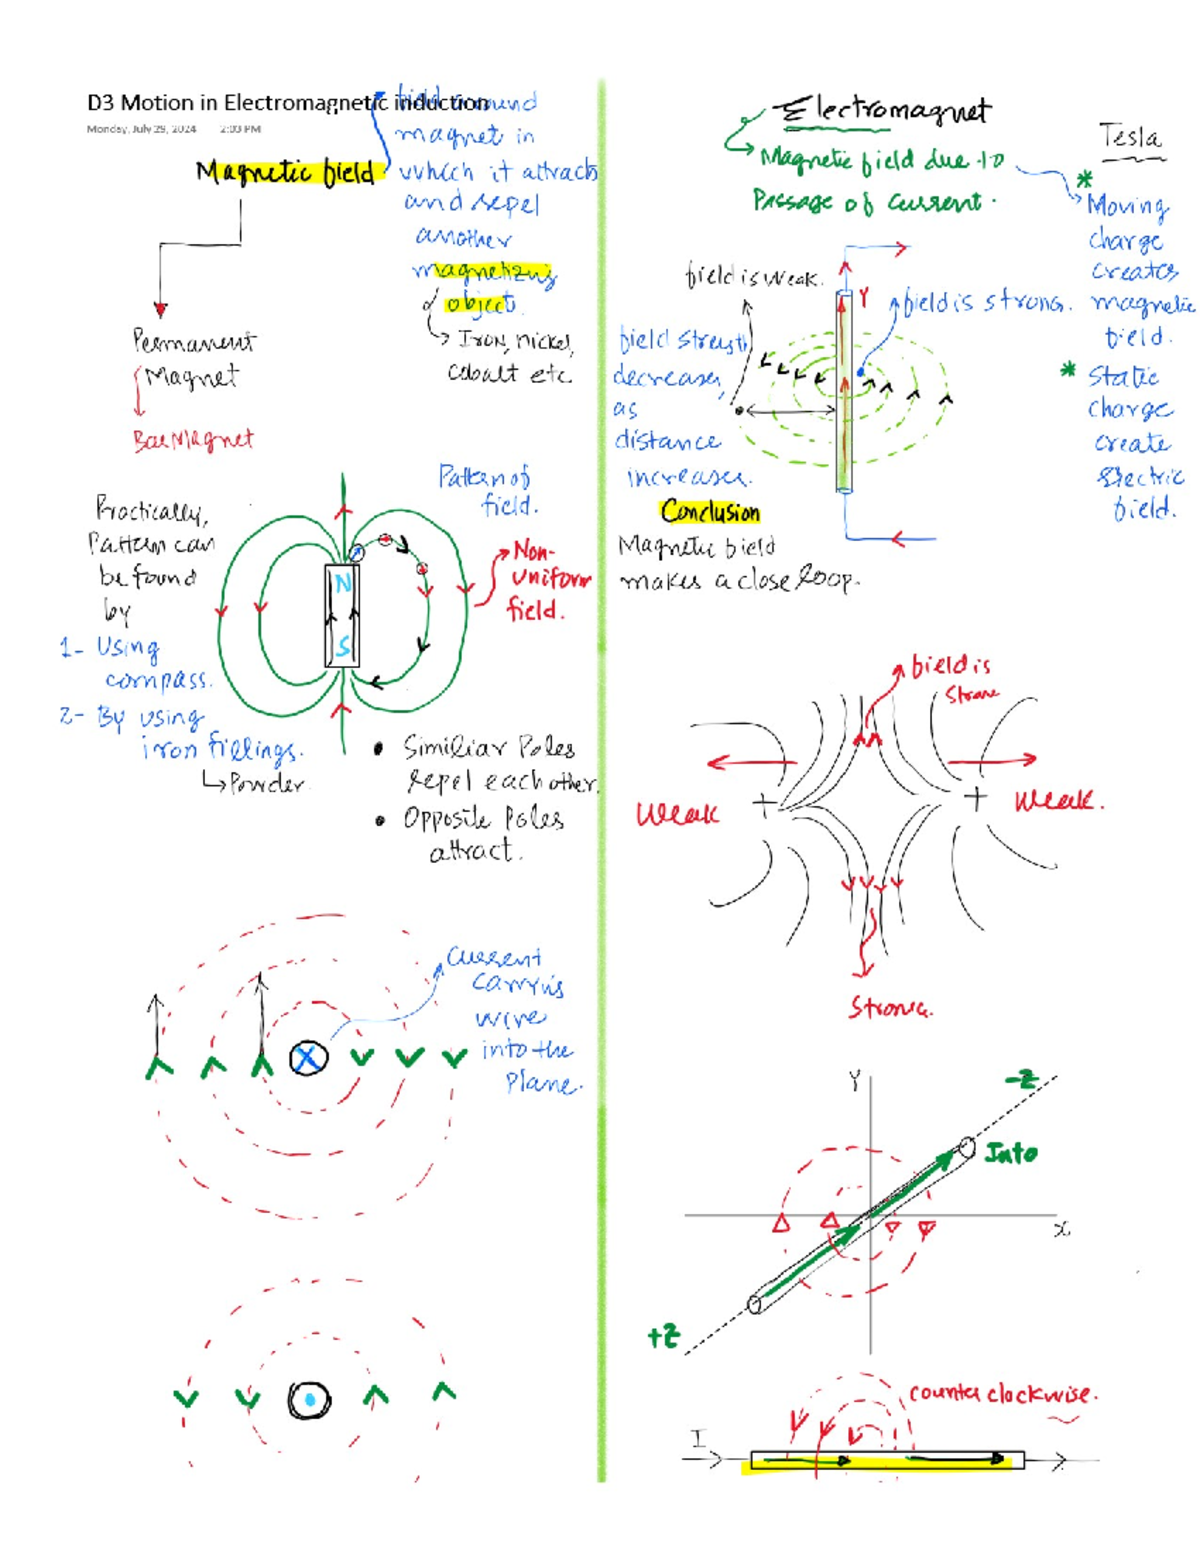 D3 Motion in Electromagnetic induction
Monday, July 29, 2024 2:03 PM
Magnetic field
field around
magnet in
which it attracts
and repel
another
magnetizing
object.
Iron, nickel,
cobalt etc
Permanent
Magnet
Bar Magnet
Pattern of
field.
Practically,
Pattern can
be found
by
1- Using
compass.
2- By using
iron fillings.
Powder.
N
S
Non-
uniform
field.
• Similiar Poles
repel each other.
• Opposite Poles
attract.
Current
Carrying
wire
into the
plane.
X
Electromagnet
Magnetic field due to
Passage of current.
Tesla
* Moving
charge
creates
magnetic
field.
* Static
charge
create
Electric
field.
field is weak.
Y
field is strong.
field strength
decreases,
as
distance
increases.
Conclusion
Magnetic field
makes a close loop.
field is
Weak
+
+
Weak.
Y
-Z
Into
X
+Z
counter clockwise.
I